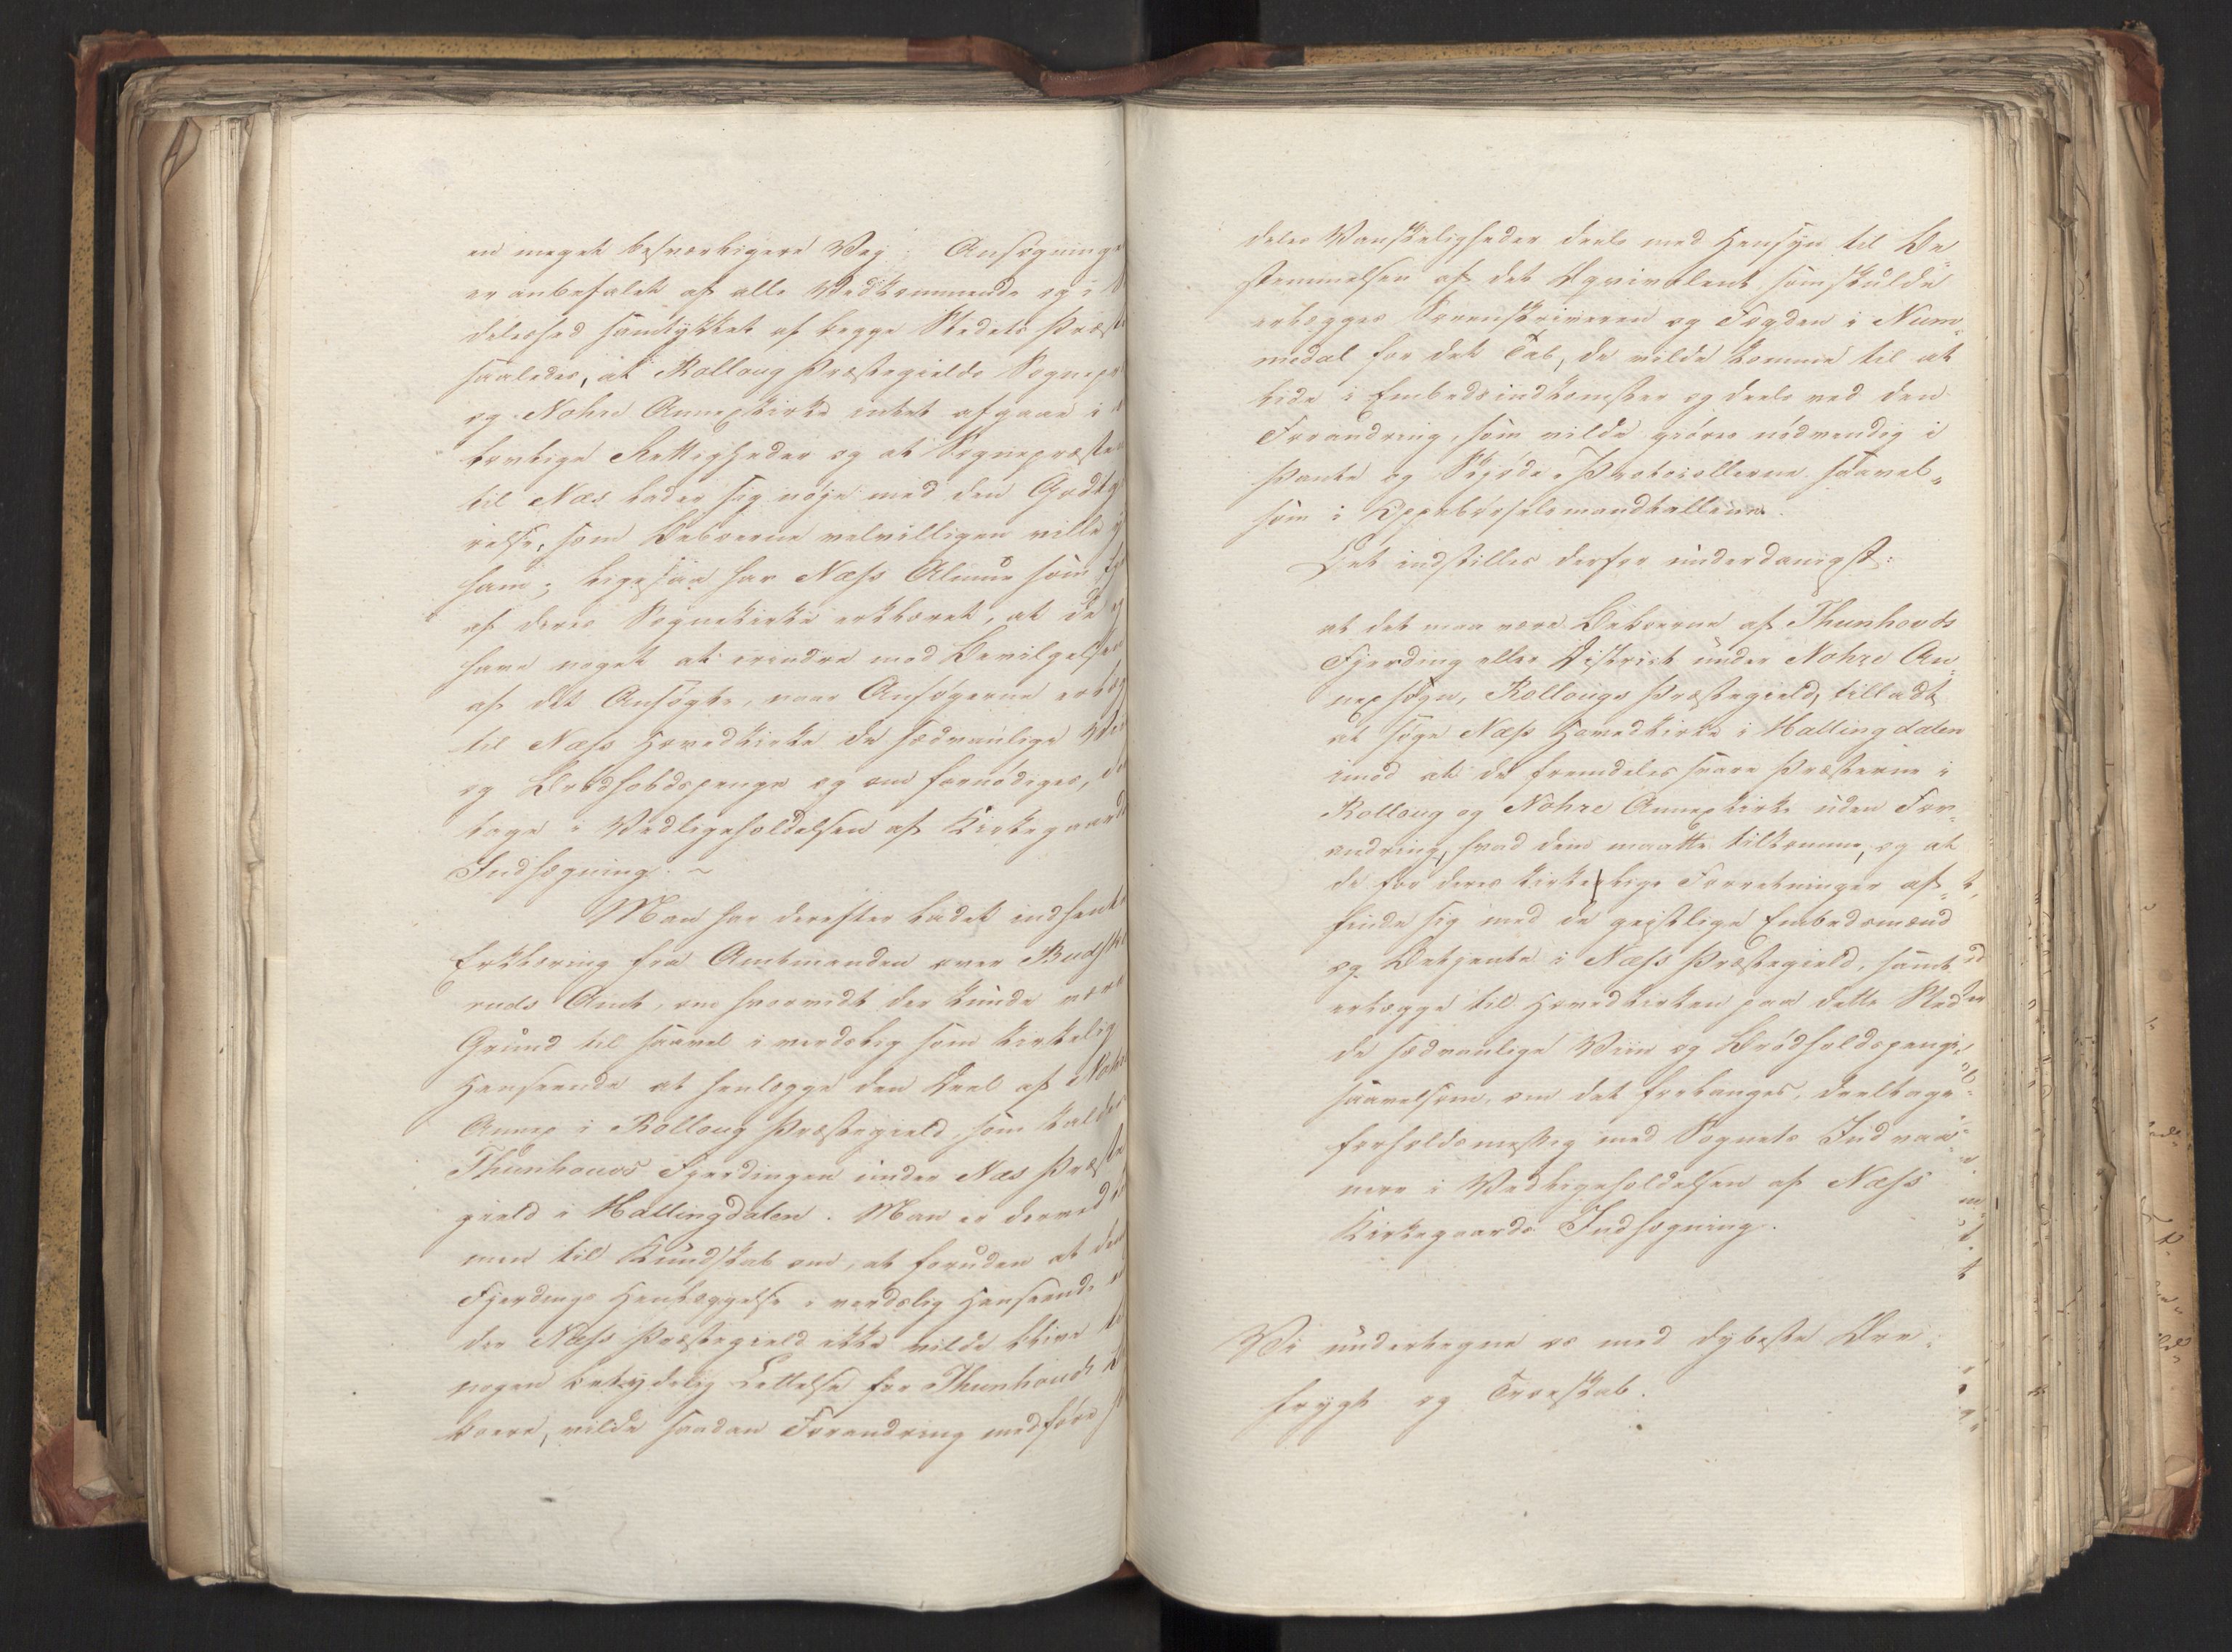 en meget besværligere Vej. Ansøgninge
er anbefalet af alle Vedkommende og i
deleshed samtykket af begge Stedets Præste
saaledes, at Rollaug Præstegields Sognepr
og Nohre Annexkirke intet afgaar i
lovlige Rettigheder og at Sognepræsten
til Næs lader sig nøje med den Godtg
relse, som Beboerne velvilligen ville
ham; ligesaa har Næss Almue som Ej
af deres Sognekirke erklæret, at de
have noget at erindre mod Bevilgelsen
af det Ansøgte, naar Ansøgerne erlæg
til Næss Hovedkirke de sædvanlige
og Brødholdspenge og om fornødiges,
tage i Vedligeholdelsen af Kirkegaarde
Indhegning. ~
Man har derefter ladet indhente
Erklæring fra Amtmanden over Budske
ruds Amt, om hvorvidt der kunde være
Grund til saavel i verdslig som kirkelig
Henseende at henlægge den Deel af Nohre
Annex i Rollaug Præstegield, som kaldes
Thunhovds Fjerdingen under Næs Præste
gield i Hallingdalen. Man er derved
men til Kundskab om, at foruden at den
Fjerdings Henlæggelse i verdslig Henseende
der Næss Præstegield ikke vilde blive
nogen betydelig Lettelse for Thunhovds
boere, vilde saadan Forandring medføre
deles Vanskeligheder deels med Hensyn til Be-
stemmelsen af det Eqvivalent som skulde
erlægges Sorenskriveren og Fogden i Num-
medal for det Tab, de vilde komme til at
lide i Embedsindkomster og deels ved den
Forandring, som vilde giøres nødvendig i
Pante og Skjøde-Protocollerne saavel-
som i Oppebørselsmandtallene.
Det indstilles derfor underdanigst:
at det maa være Beboerne af Thunhovds
Fjerding eller District under Nohre An-
nexsogn, Rollougs Præstegield, tilladt
at søge Næss Hovedkirke i Hallingdalen
imod at de fremdeles svare Præsterne i
Rolloug og Nohre Annexkirke uden For-
andring, hvad dem maatte tilkomme, og at
de for deres kirkelige Forretninger af-
finde sig med de geistlige Embedsmænd
og Betjente i Næss Præstegield, samt
erlægge til Hovedkirken paa dette Sted
de sædvanlige Viin og Brødholdspenge,
saavelsom, om det forlanges, deeltage
forholdsmessig med Sognets Indvaa-
nere i Vedligeholdelsen af Næss
Kirkegaards Indhegning.
Vi undertegne os med dybeste Ære-
frygt og Troeskab.